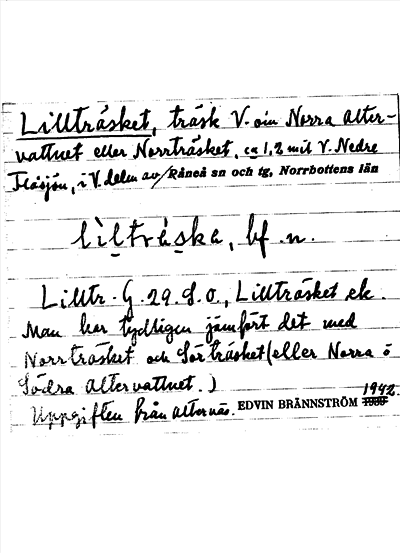 Lillträsket, träsk V. om Norra Alter-
vattnet eller Norrträsket, ca 1,2 mil V. Nedre
Flåsjön, i V. delen av Råneå sn och tg, Norrbottens län
lìltrǻska, bf. n.
Lilltr. G. 29. S. O., Lillträsket ek.
Man har tydligen jämfört det med
Norrträsket och Sörträsket (eller Norra o
Södra Altervattnet.)
Uppgiften från Alternäs. EDVIN BRÄNNSTRÖM 1942